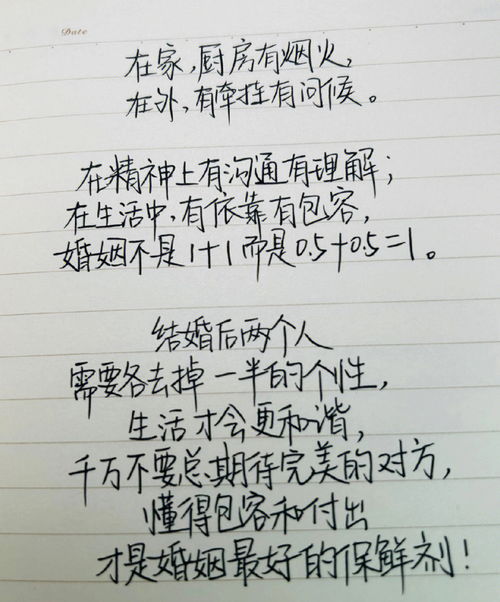 Date
在家,厨房有烟火,
在外,有牵挂有问候。
在精神上有沟通有理解;
在生活中,有依靠有包容,
婚姻不是1+1而是0.5+0.5=1。
结婚后两个人
需要各去掉一半的个性,
生活才会更和谐,
千万不要总期待完美的对方,
懂得包容和付出
才是婚姻最好的保鲜剂!